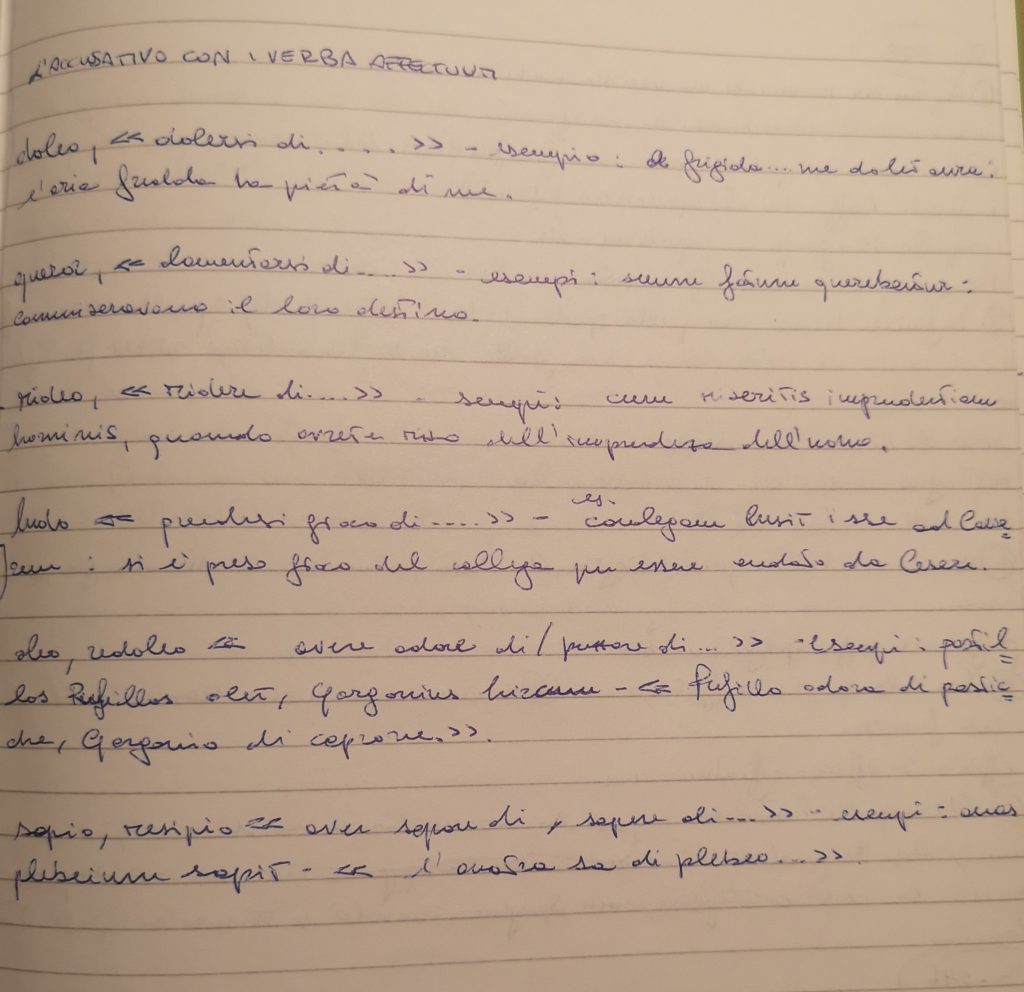 L'ACCUSATIVO CON I VERBA AFFECTUUM
doleo, << dolersi di. . . . >> - esempio: frigida... me dolet aura:
l'aria fredda ha pietà di me.
queror, << lamentarsi di.... >> - esempi: suum fatum querebantur:
commiseravano il loro destino.
rideo, << ridere di.... >> - esempi: cum riseritis imprudentiam
hominis, quando avrete riso dell'imprudenza dell'uomo.
ludo << prendersi gioco di.... >> - es. collegam lusit isse ad Caesa=
rem: si è preso gioco del collega per essere andato da Cesare.
oleo, redoleo << avere odore di/puzzare di... >> - esempi: pastil=
los Rufillos olet, Gorgonius hircum - << Rufillo odora di pastic=
che, Gorgonio di caprone.>>.
sapio, resipio << aver sapore di, sapere di... >> - esempi: anas
plebeium sapit - << l'anatra sa di plebeo...>>.